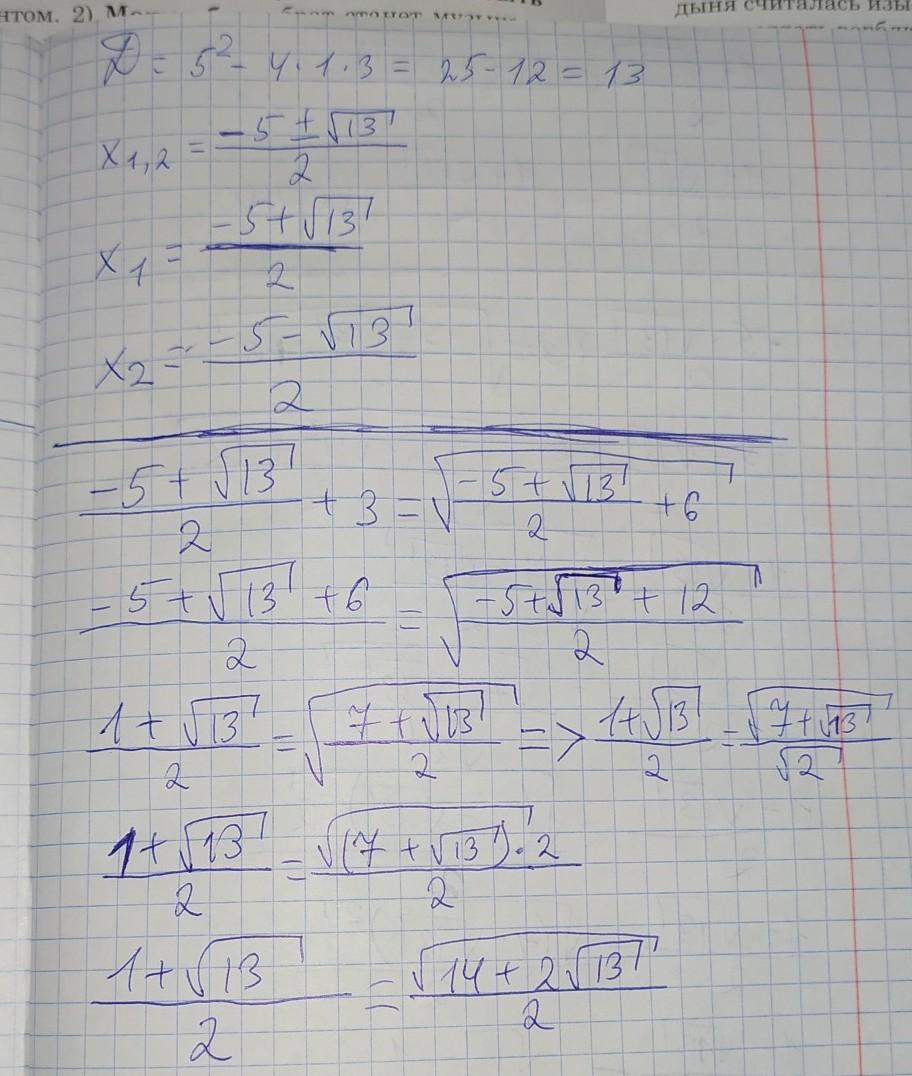 нтом. 2)
дыня считалась изы
D = 5² - 4 · 1 · 3 = 25 - 12 = 13
x₁,₂ = (-5 ± √13)/2
x₁ = (-5 + √13)/2
x₂ = (-5 - √13)/2
(-5 + √13)/2 + 3 = √((-5 + √13)/2 + 6)
(-5 + √13 + 6)/2 = √((-5 + √13 + 12)/2)
(1 + √13)/2 = √((7 + √13)/2) => (1 + √13)/2 = √(7 + √13)/√2
(1 + √13)/2 = √((7 + √13) · 2)/2
(1 + √13)/2 = √(14 + 2√13)/2